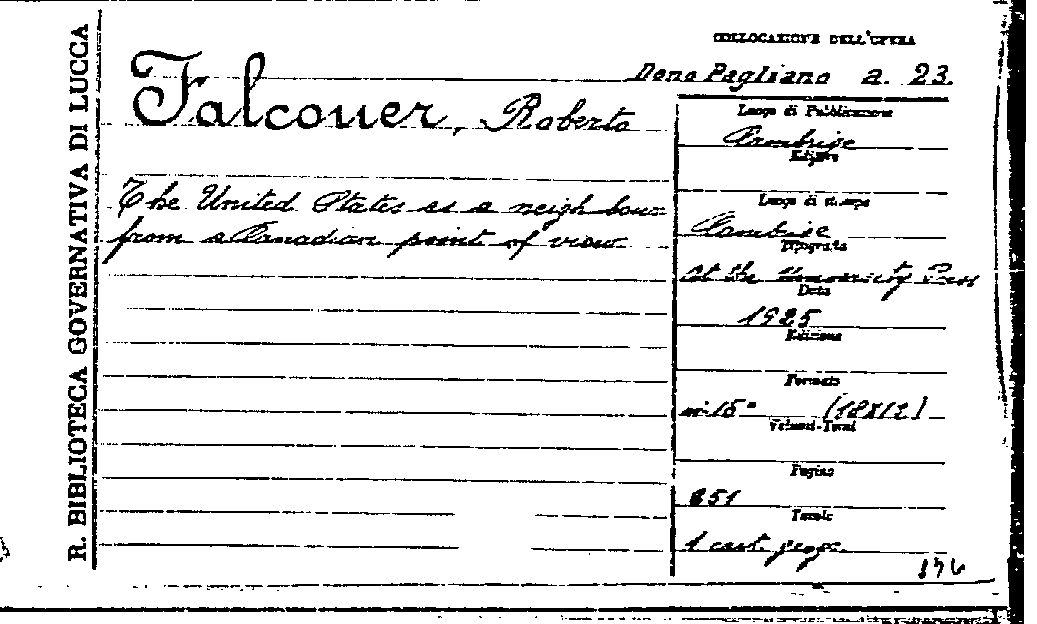 R. BIBLIOTECA GOVERNATIVA DI LUCCA
COLLOCAZIONE DELL'OPERA
Dono Pagliano a. 23.
Falconer, Roberto
The United States as a neighbour
from a Canadian point of view
Luogo di Pubblicazione
Cambrige
Editore
Luogo di stampa
Cambrige
Tipografia
At the University Press
Data
1925
Edizione
Formato
in 16° (18x12)
Volumi-Tomi
Pagine
251
Tavole
1 cart. geogr.